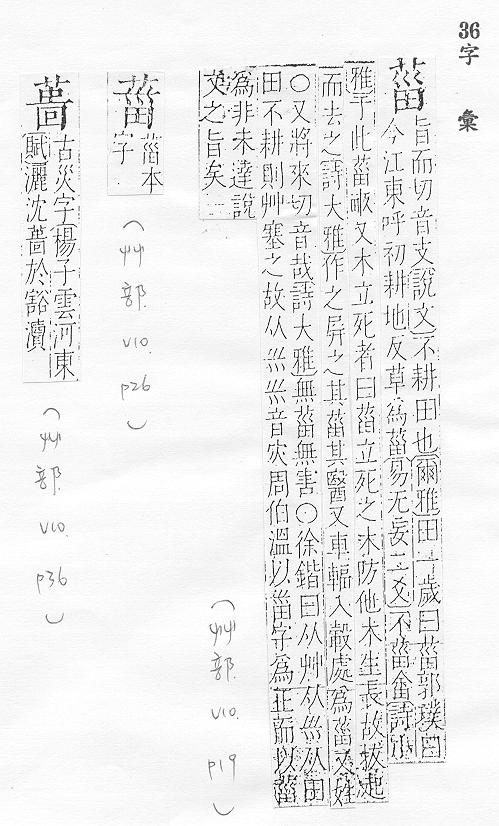 36
字彙
菑 旨而切音支說文不耕田也爾雅田一歲曰菑郭璞曰
今江東呼初耕地反草為菑易无妄二爻不菑畬詩小
雅于此菑畝又木立死者曰菑立死之木防他木生長故拔起
而去之詩大雅作之屏之其菑其翳又車輻入轂處為菑又姓
○又將來切音哉詩大雅無菑無害○徐鍇曰从艸从巛从田
田不耕則艸塞之故从巛巛音灾周伯溫以甾字為正而以菑
為非未達說
文之旨矣
(艸部 V10. p19)
葘 菑本
字
(艸部 V10. p26)
蔷 古災字楊子雲河東
賦灑沈蔷於豁瀆
(艸部 V10. p36)